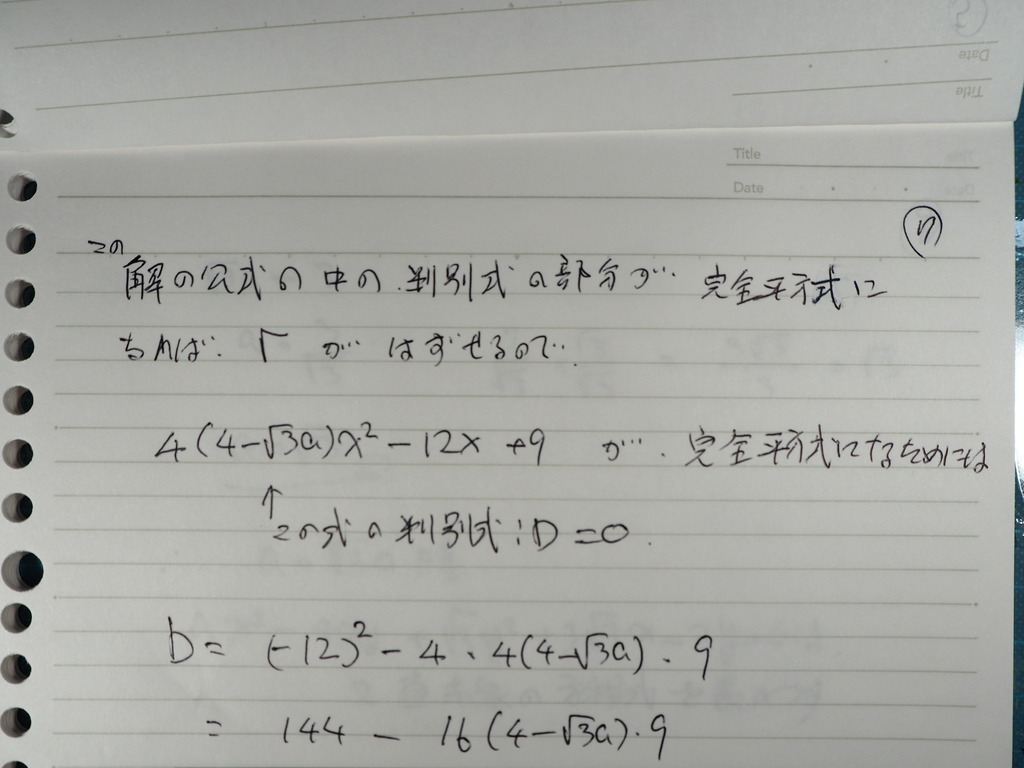 Title
Date
Title
Date
この
解の公式の中の判別式の部分が 完全平方式に
なれば √ がはずせるので
4(4-√3a)x² - 12x + 9 が 完全平方式になるためには
↑
この式の判別式:D = 0.
D = (-12)² - 4・4(4-√3a)・9
= 144 - 16(4-√3a)・9